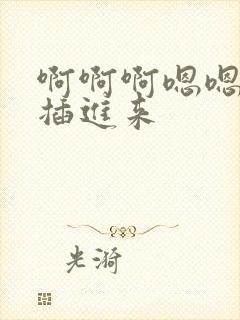 啊啊啊嗯嗯
插进来
光漪